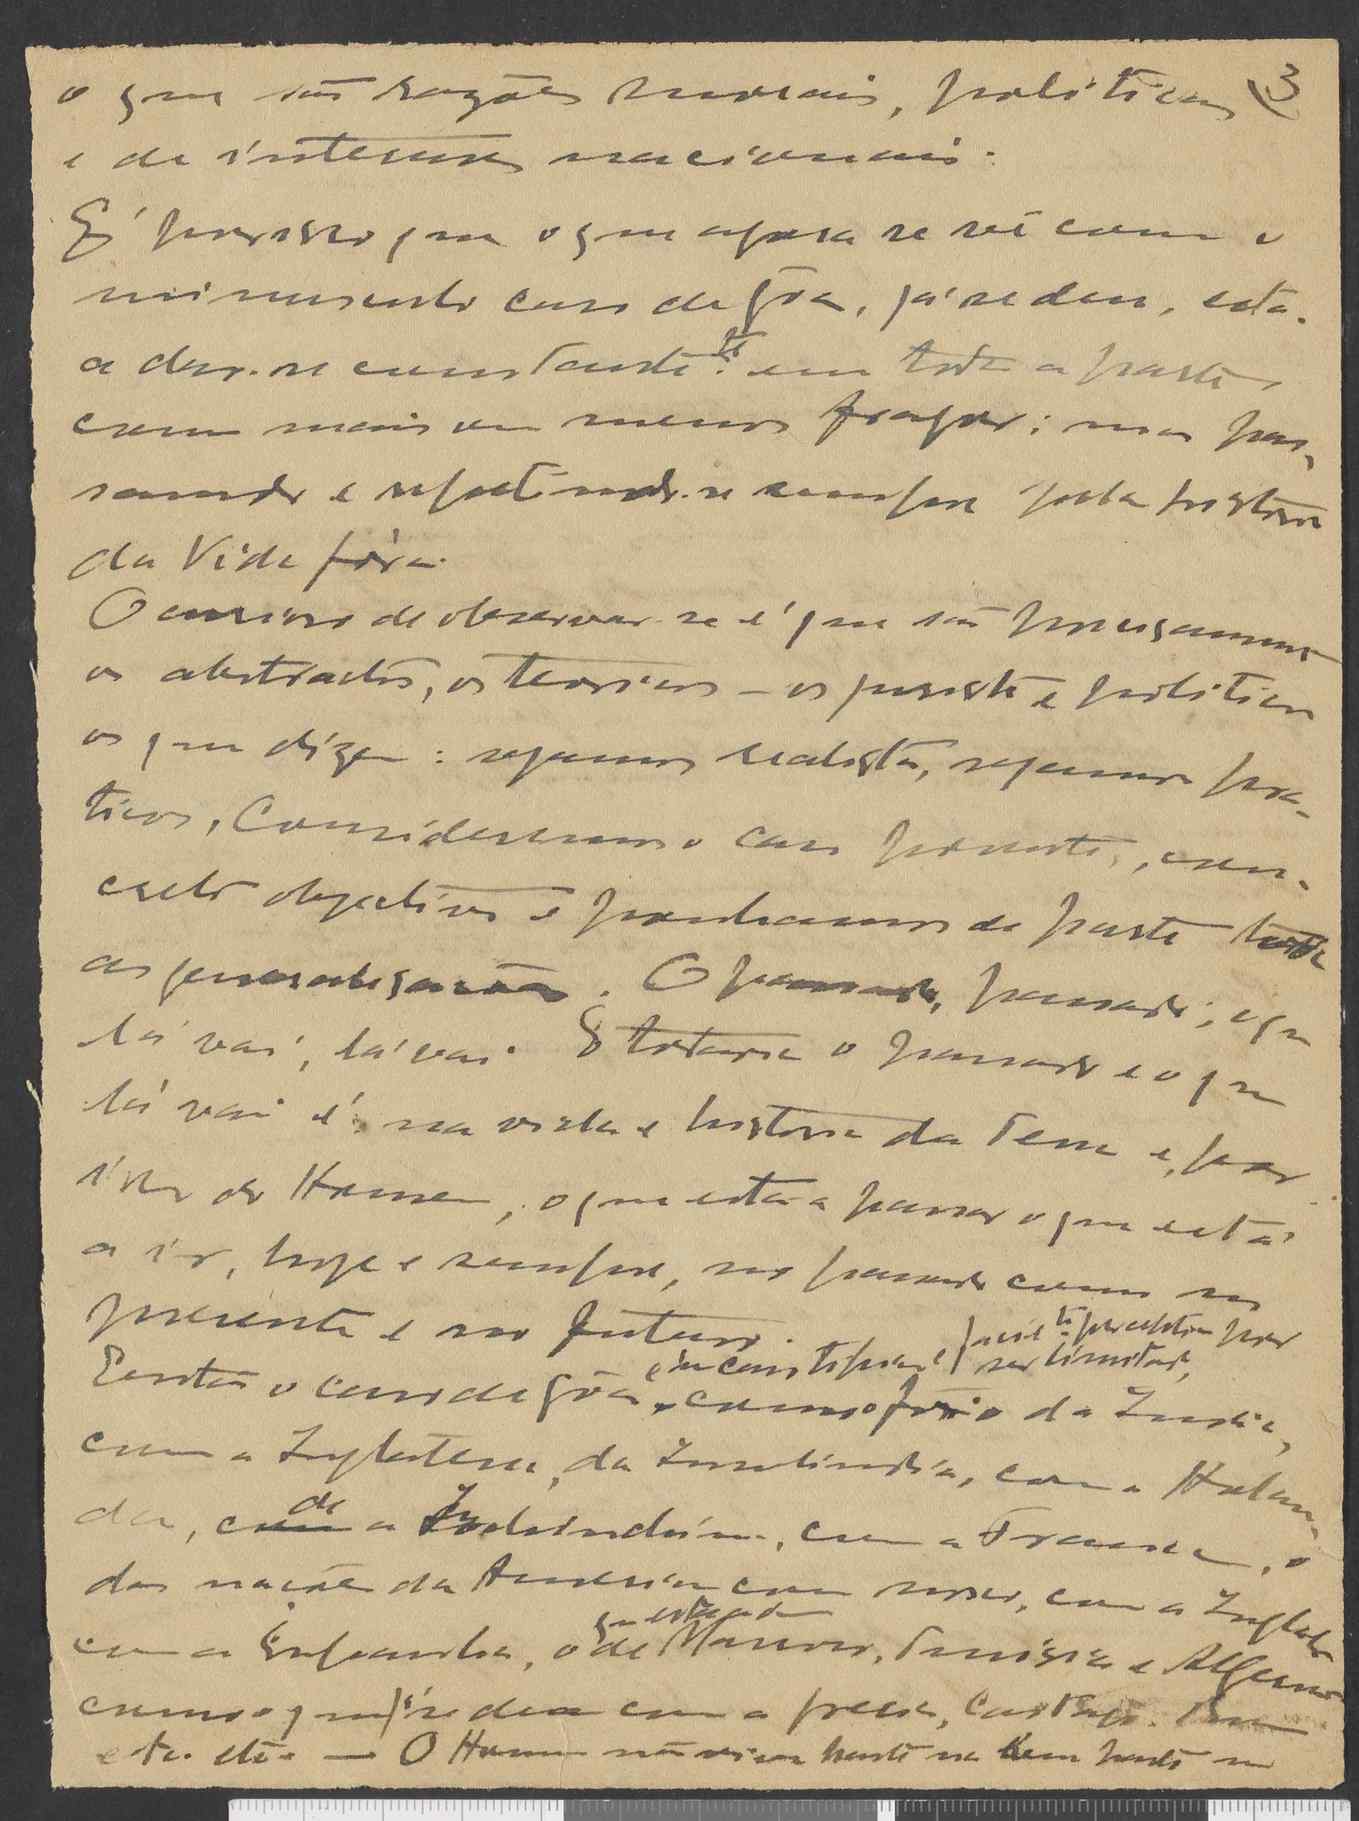 3
o que são razões morais, politicas
e de interesses nacionais.
É por isso que o que agora se vê com o
minusculo caso de Gôa, já se deu, está
a dar-se constante.te em toda a parte,
com mais ou menos fragor: mas pas-
sando e repetindo-se sempre pela historia
da Vida fóra.
O curioso de observar-se é que são precisamente
os abstractos, os teoricos — os juristas e politicos
os que dizem: sejamos realistas, sejamos pra-
ticos, Consideremos o caso presente, con-
creto objectivo e ponhamos de parte todas
as generalisações. O passado, passado; o que
lá vai, lá vai. E todavia o passado e o que
lá vai é na vida e historia da Terra e, por
isso do Homem, o que está a passar o que está
a ir, hoje e sempre, no passado como no
presente e no futuro.
Então o caso de Gôa, perceptivel por
ser limitado,
como o foi o da India,
com a Inglaterra, da Insulindia, com a Holan-
da, de a Indochina, com a França, o
das nações da America com nosco, com a Inglaterra
com a Espanha, o de Marrocos, Tunisia e Algeria
como o que já se deu com a Grecia, Cartago, Roma
etc. etc. — O Homem não viveu nem